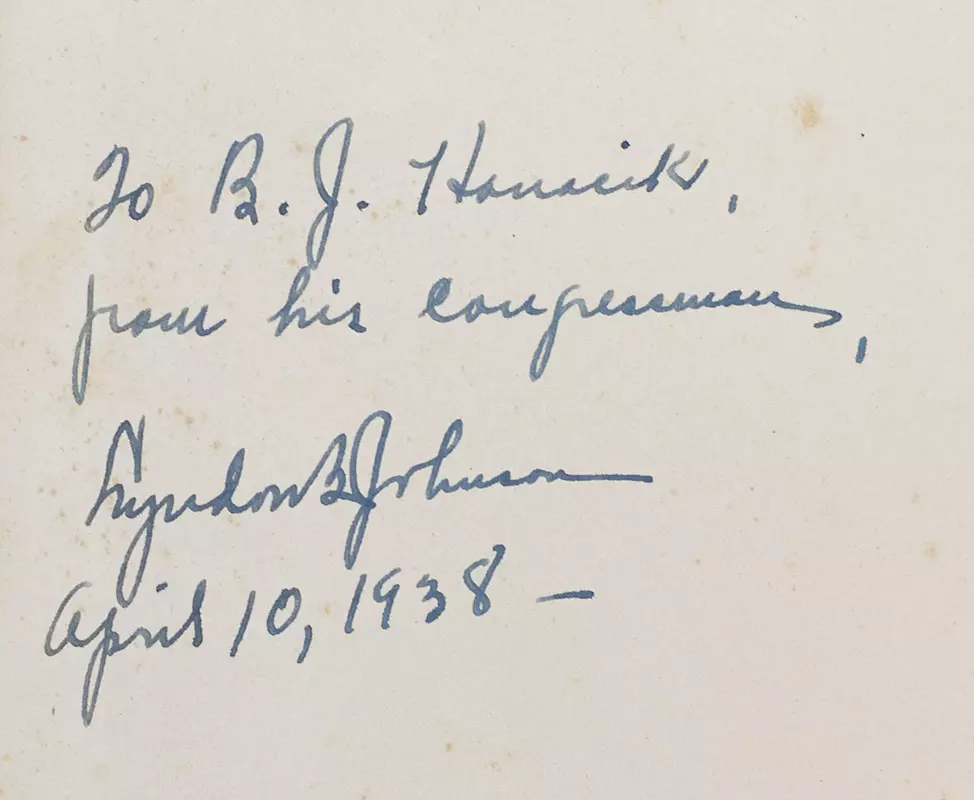 To B. J.
from his congressman,
Lyndon B Johnson
April 10, 1938 —